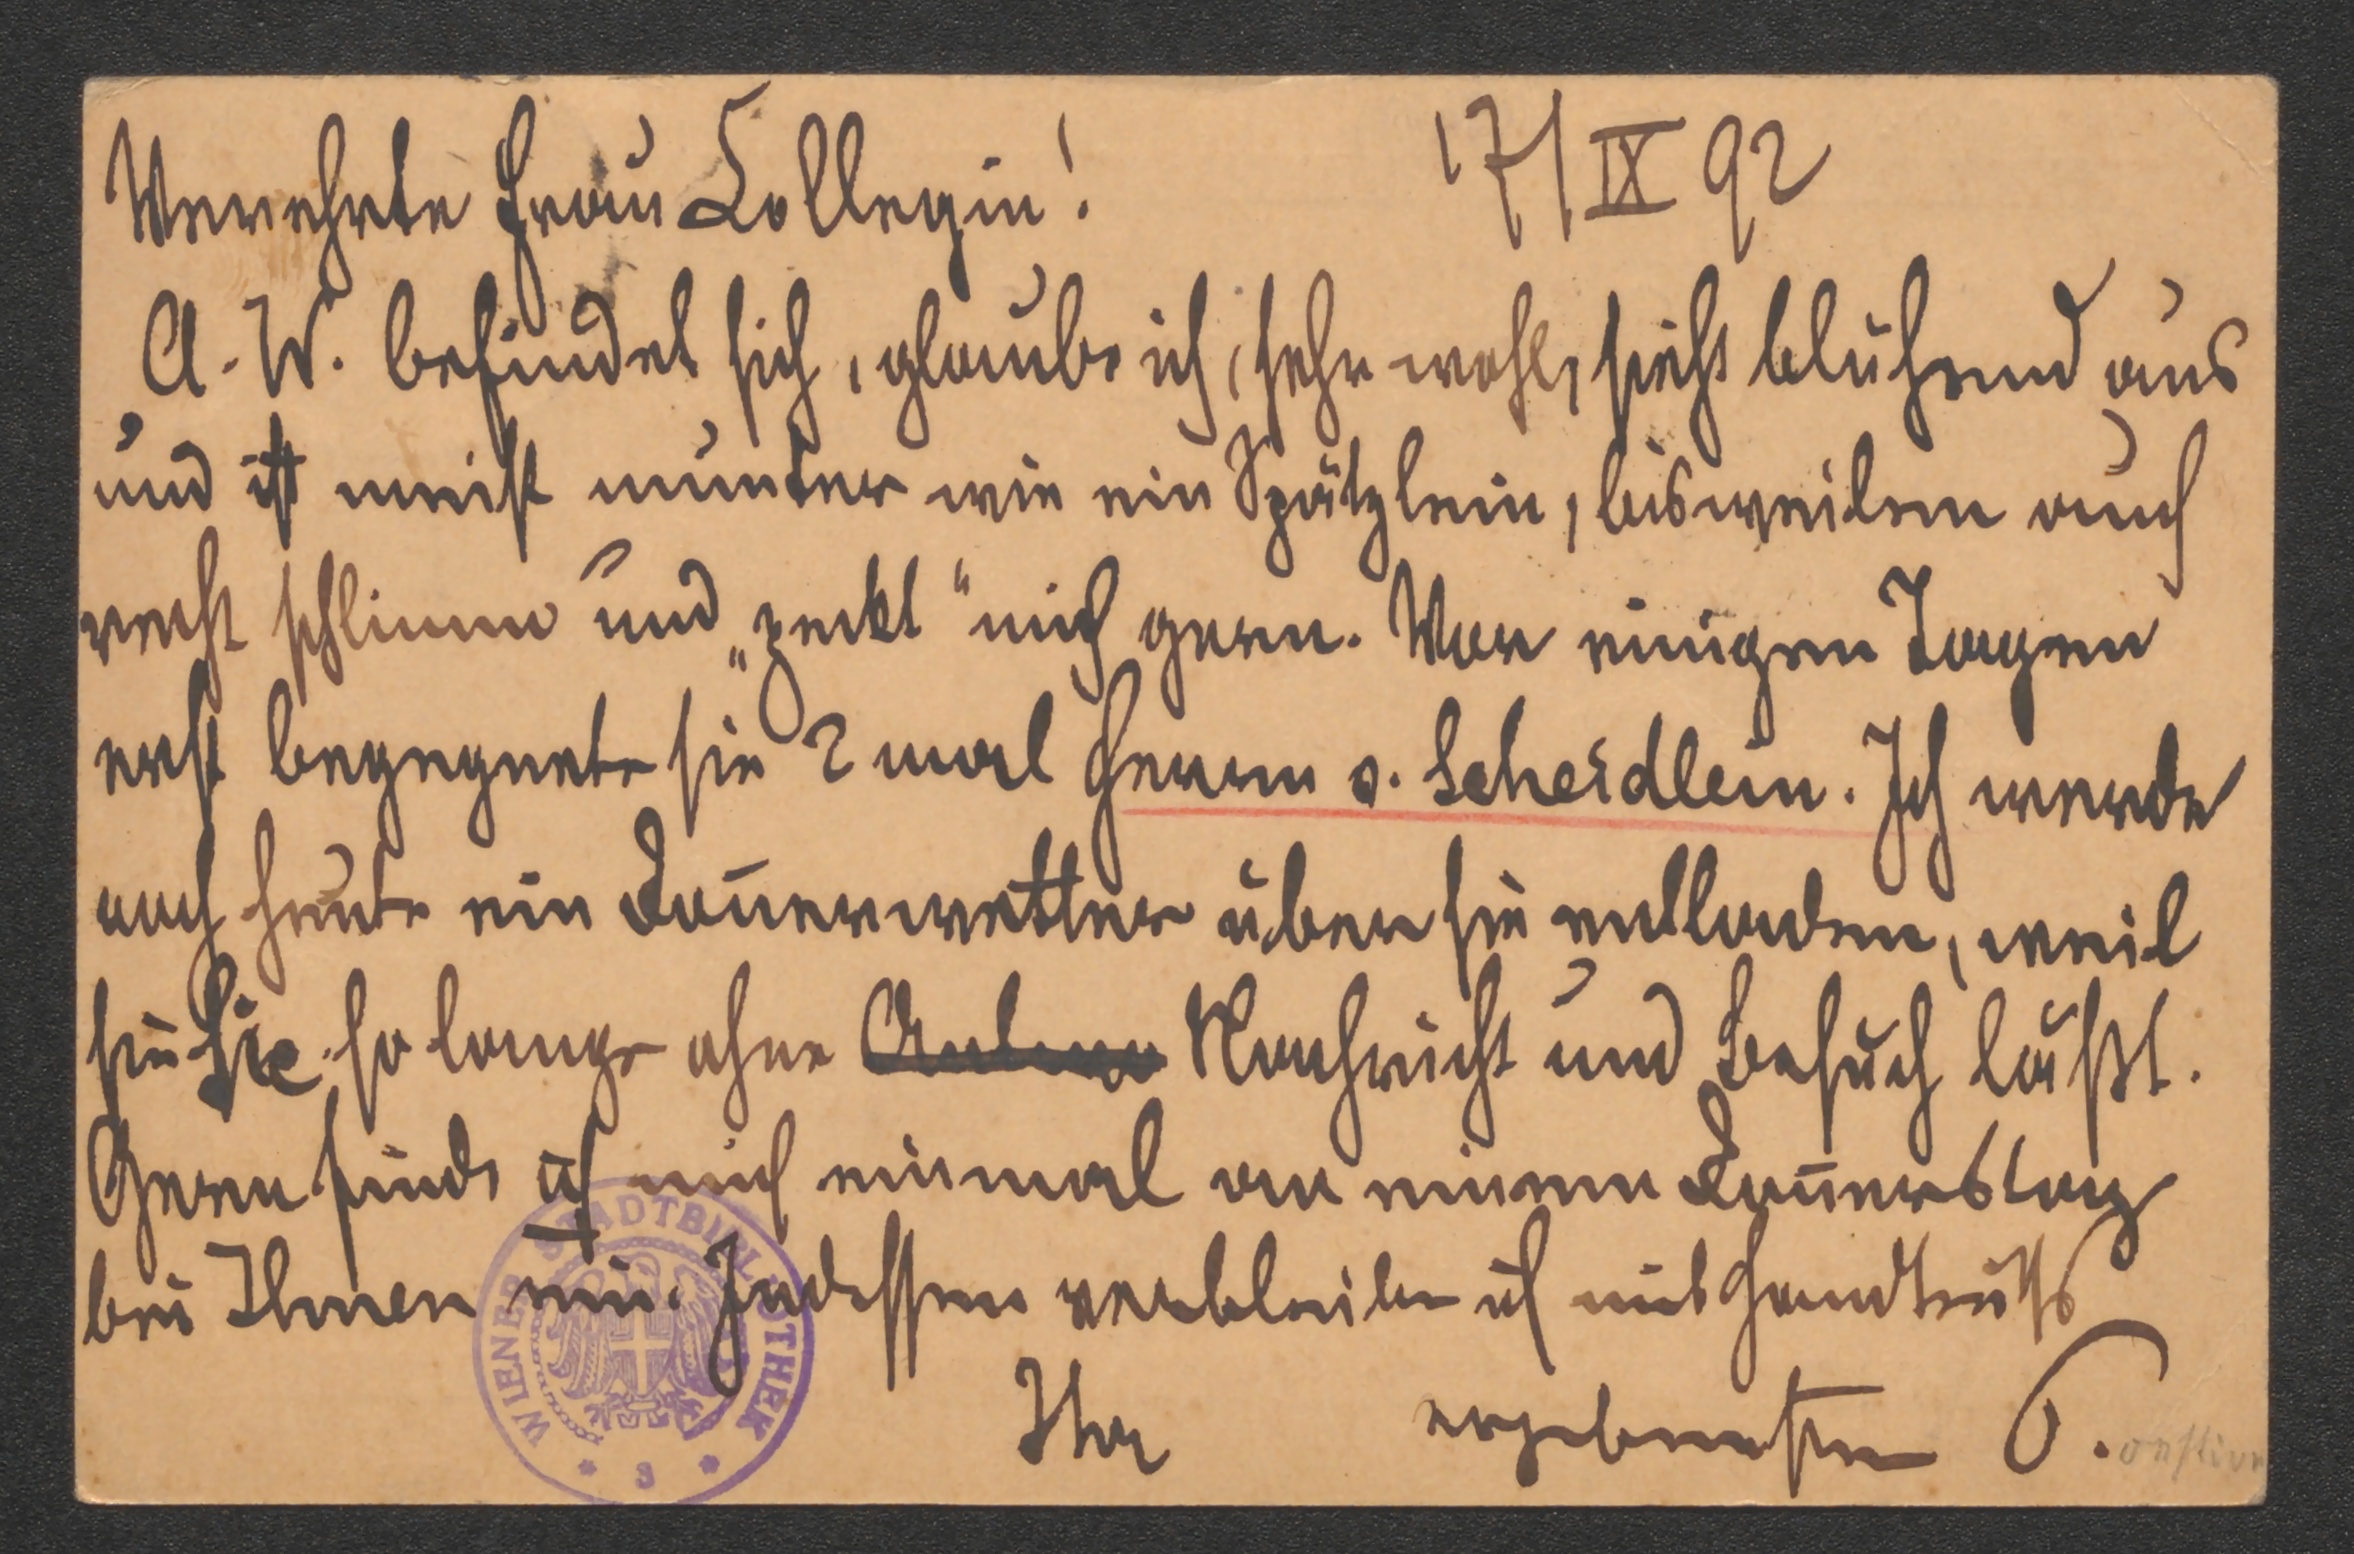 Verehrte Frau Collegin! 17/IX 92
A. W. befindet sich, glaube ich, sehr wohl, sieht blühend aus
und ist meist munter wie ein Spätzlein, bisweilen auch
recht schlimm und „zeckt“ mich gern. Vor einigen Tagen
erst begegnete sie 2 mal Herrn v. Scheidlein. Ich werde
noch heute ein Don̄erwetter über sie entladen, weil
sie Sie so lange ohne Nachricht und Besuch läßt.
Gern finde ich mich einmal an einem Don̄erstag
bei Ihnen ein. Indessen verbleibe ich mit Handkuß
Ihr ergebenster P.
WIENER STADTBIBLIOTHEK